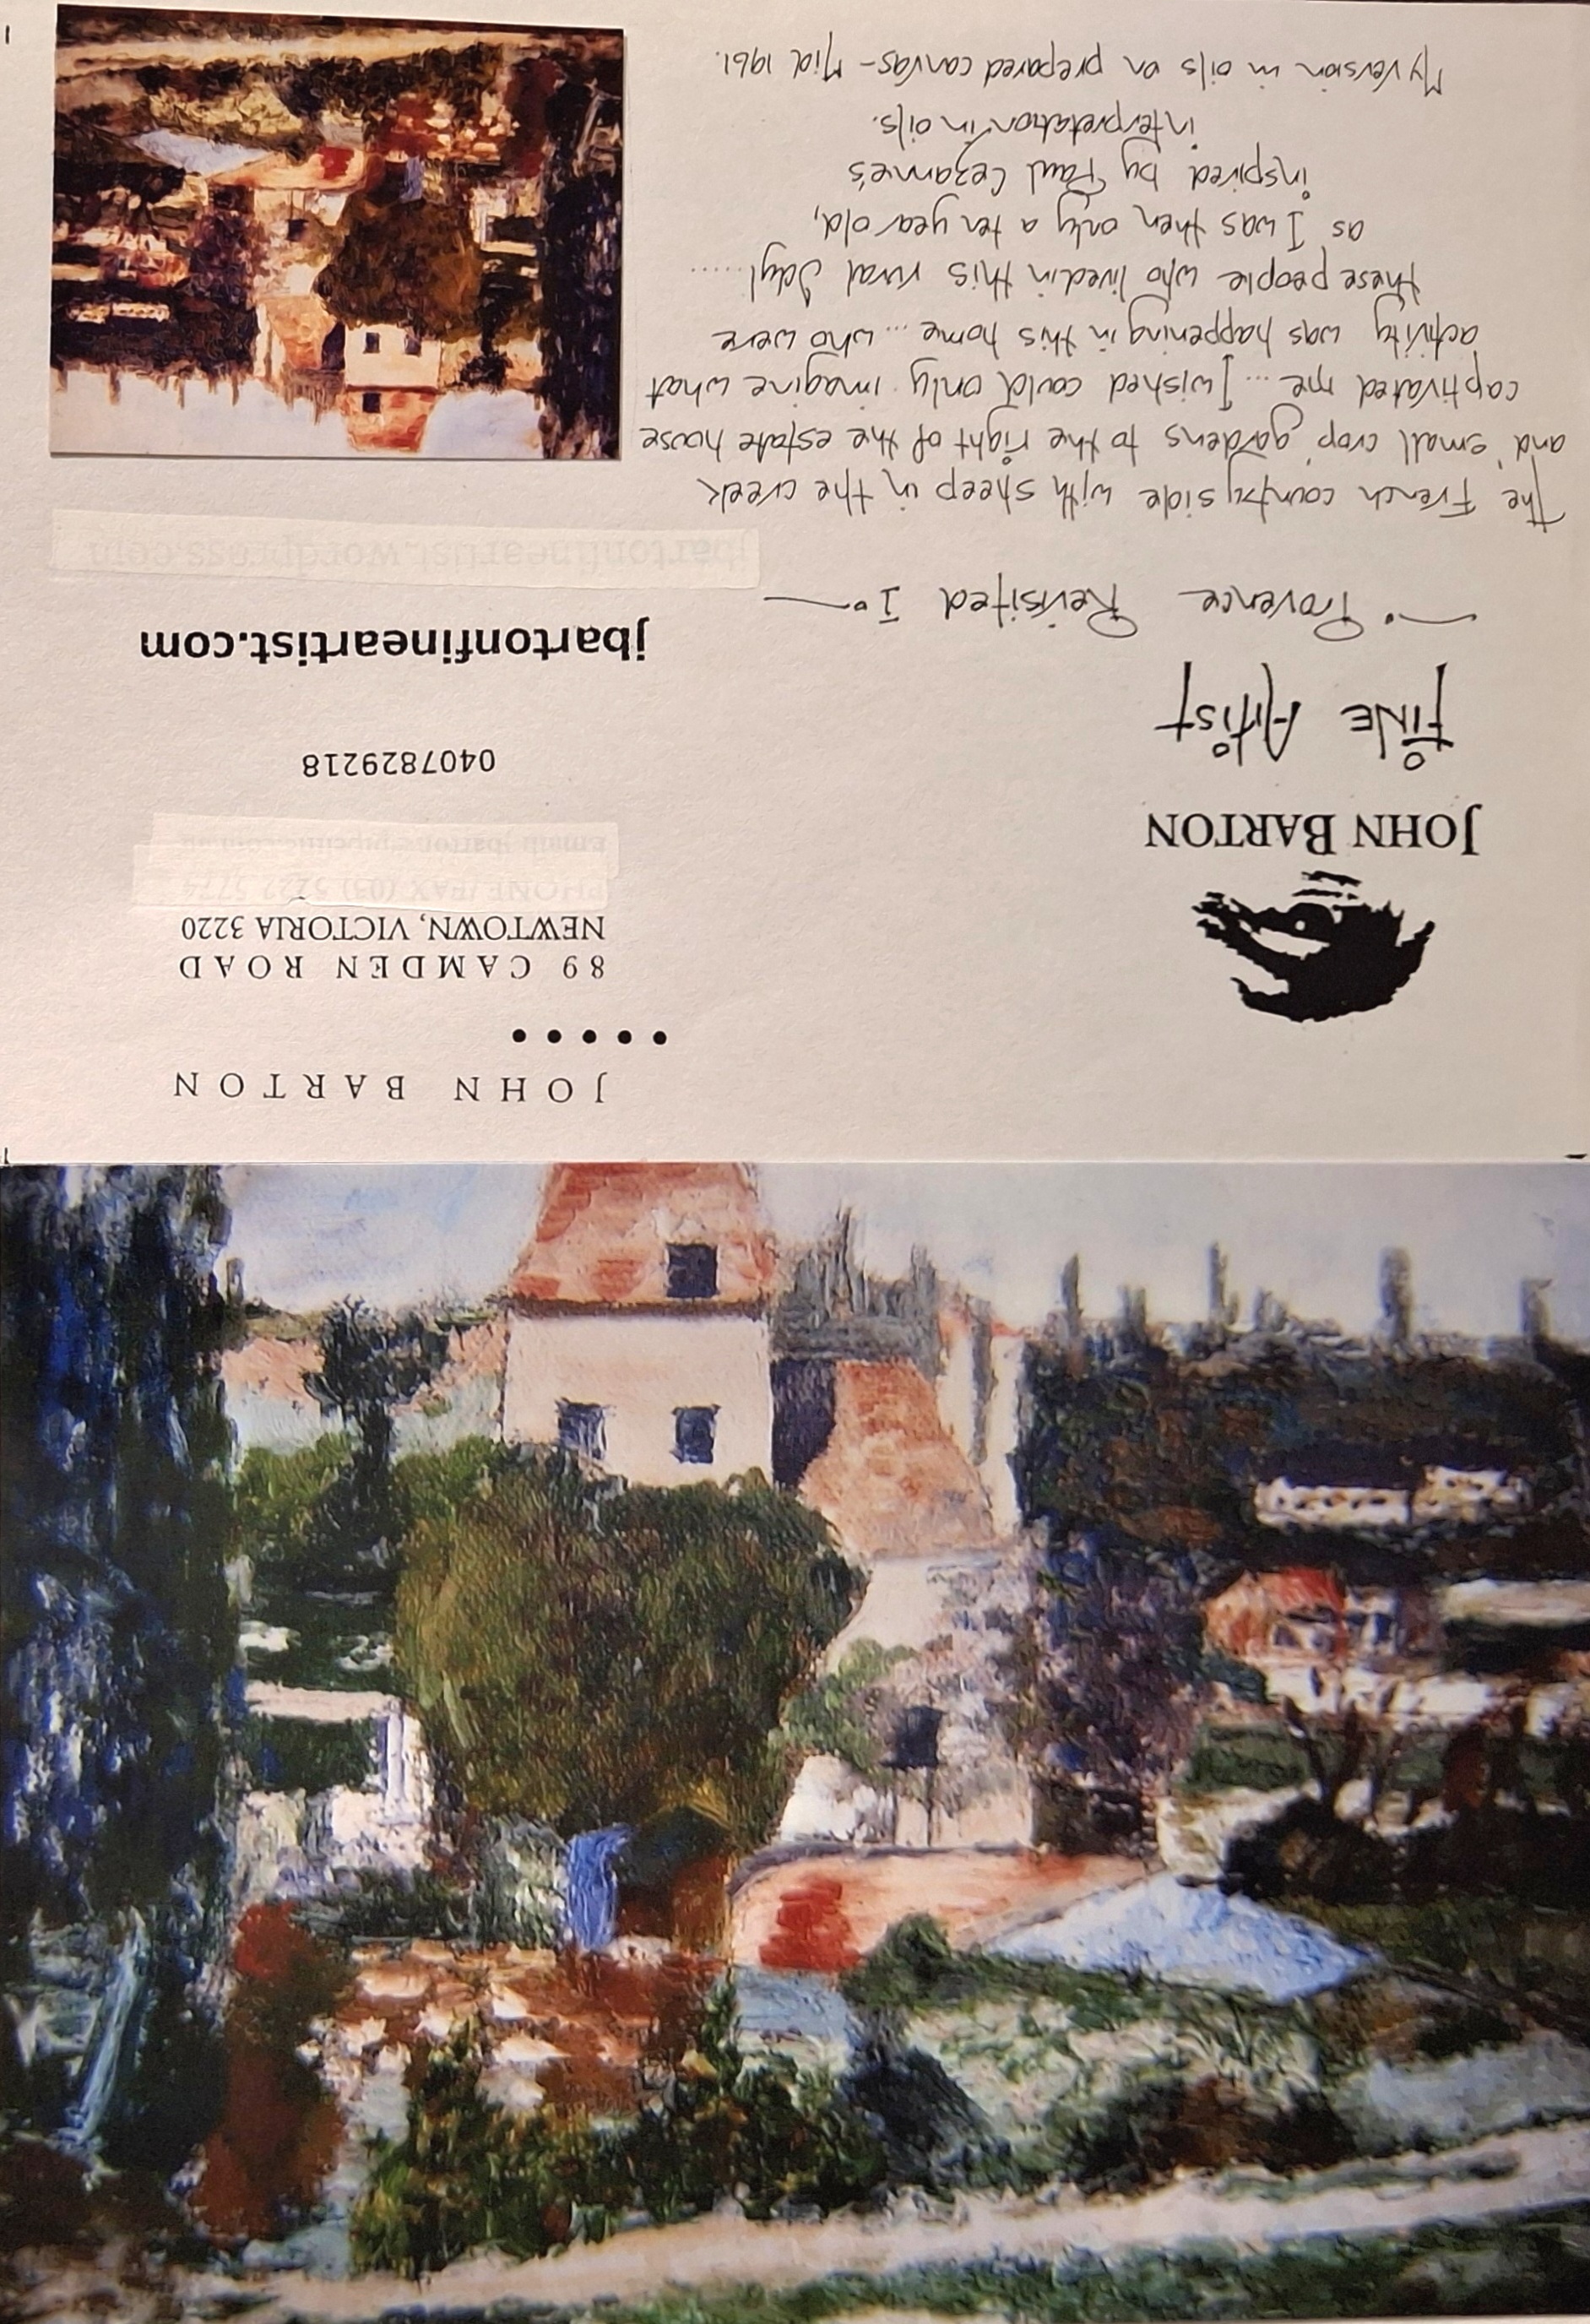 JOHN BARTON
• • • • •
89 CAMDEN ROAD
NEWTOWN, VICTORIA 3220
PHONE / FAX (03) 5222 5774
0407829218
jbartonfineartist.com
jbartonfineartist.wordpress.com
JOHN BARTON
FINE ARTIST
Provence Revisited I
The French country side with sheep in the creek
and 'small crop' gardens to the right of the estate house
captivated me ... I wished could only imagine what
activity was happening in this home ... who were
these people who lived in this rural Idyl.......
as I was then only a ten year old,
inspired by Paul Cezanne's
interpretation in oils.
My version in oils on prepared canvas - Mid 1961.